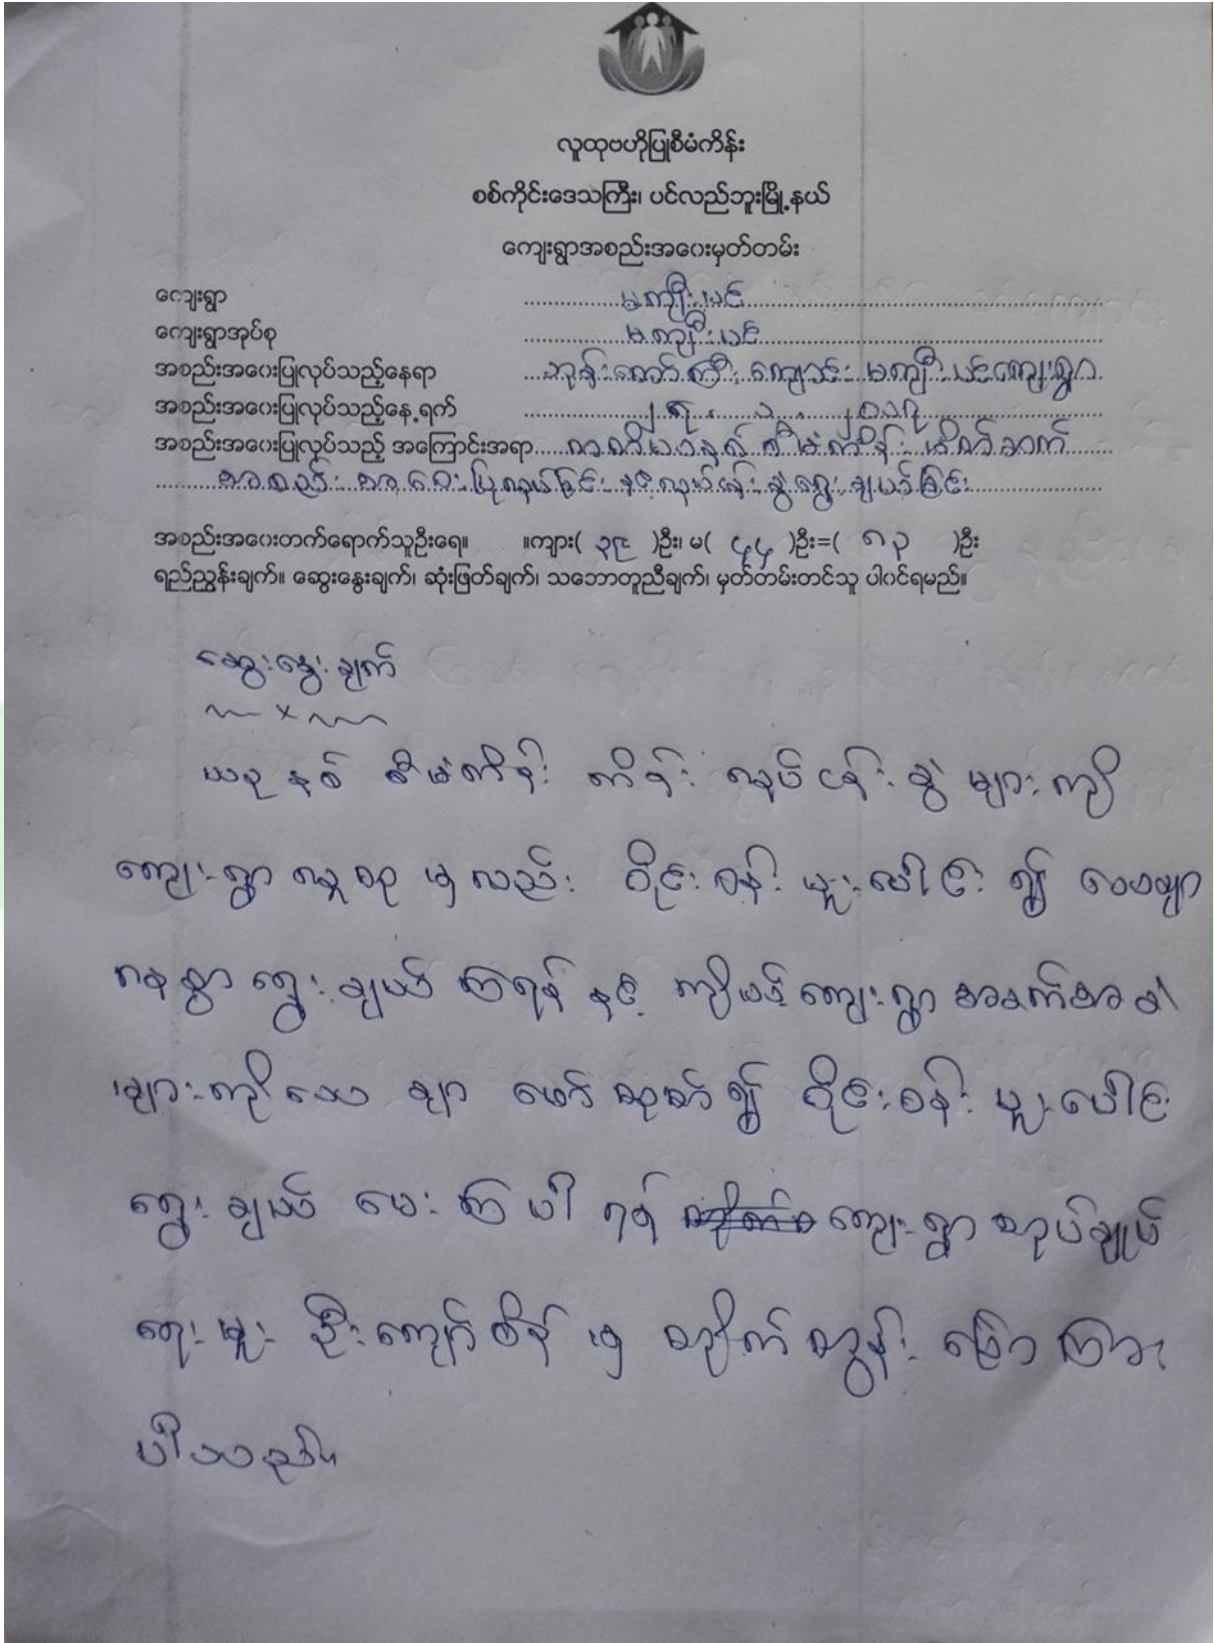 လူထုဗဟိုပြုစီမံကိန်း
စစ်ကိုင်းဒေသကြီး၊ ပင်လည်ဘူးမြို့နယ်
ကျေးရွာအစည်းအဝေးမှတ်တမ်း
ကျေးရွာ မကျီးပင်
ကျေးရွာအုပ်စု မကျီးပင်
အစည်းအဝေးပြုလုပ်သည့်နေရာ ဘုန်းတော်ကြီးကျောင်း မကျီးပင်ကျေးရွာ
အစည်းအဝေးပြုလုပ်သည့်နေ့ရက် ၂၇.၁.၂၀၁၇
အစည်းအဝေးပြုလုပ်သည့် အကြောင်းအရာ စီမံကိန်း
အစည်းအဝေးပြုလုပ်ခြင်းနှင့်လုပ်ငန်းခွဲရွေးချယ်ခြင်း
အစည်းအဝေးတက်ရောက်သူဦးရေ။ ။ကျား( ၃၉ )ဦး၊ မ( ၄၄ )ဦး=( ၈၃ )ဦး
ရည်ညွှန်းချက်။ ဆွေးနွေးချက်၊ ဆုံးဖြတ်ချက်၊ သဘောတူညီချက်၊ မှတ်တမ်းတင်သူ ပါဝင်ရမည်။
ဆွေးနွေးချက်
ယခုနှစ် စီမံကိန်း ကိန်း လုပ်ငန်းခွဲများကို
ကျေးရွာလူထုမှလည်း ဝိုင်းဝန်းပူးပေါင်း၍ သေချာ
ဂနစွာ ရွေးချယ်ကြရန်နှင့် ကိုယ့်ကျေးရွာအခက်အခဲ
များကိုသေချာ ဖော်ထုတ်၍ ဝိုင်းဝန်းပူးပေါင်း
ရွေးချယ်ပေးကြပါရန် ကျေးရွာအုပ်ချုပ်
ရေးမှူး ဦးကျော်စိန်မှ တိုက်တွန်းပြောကြား
ပါသည်။